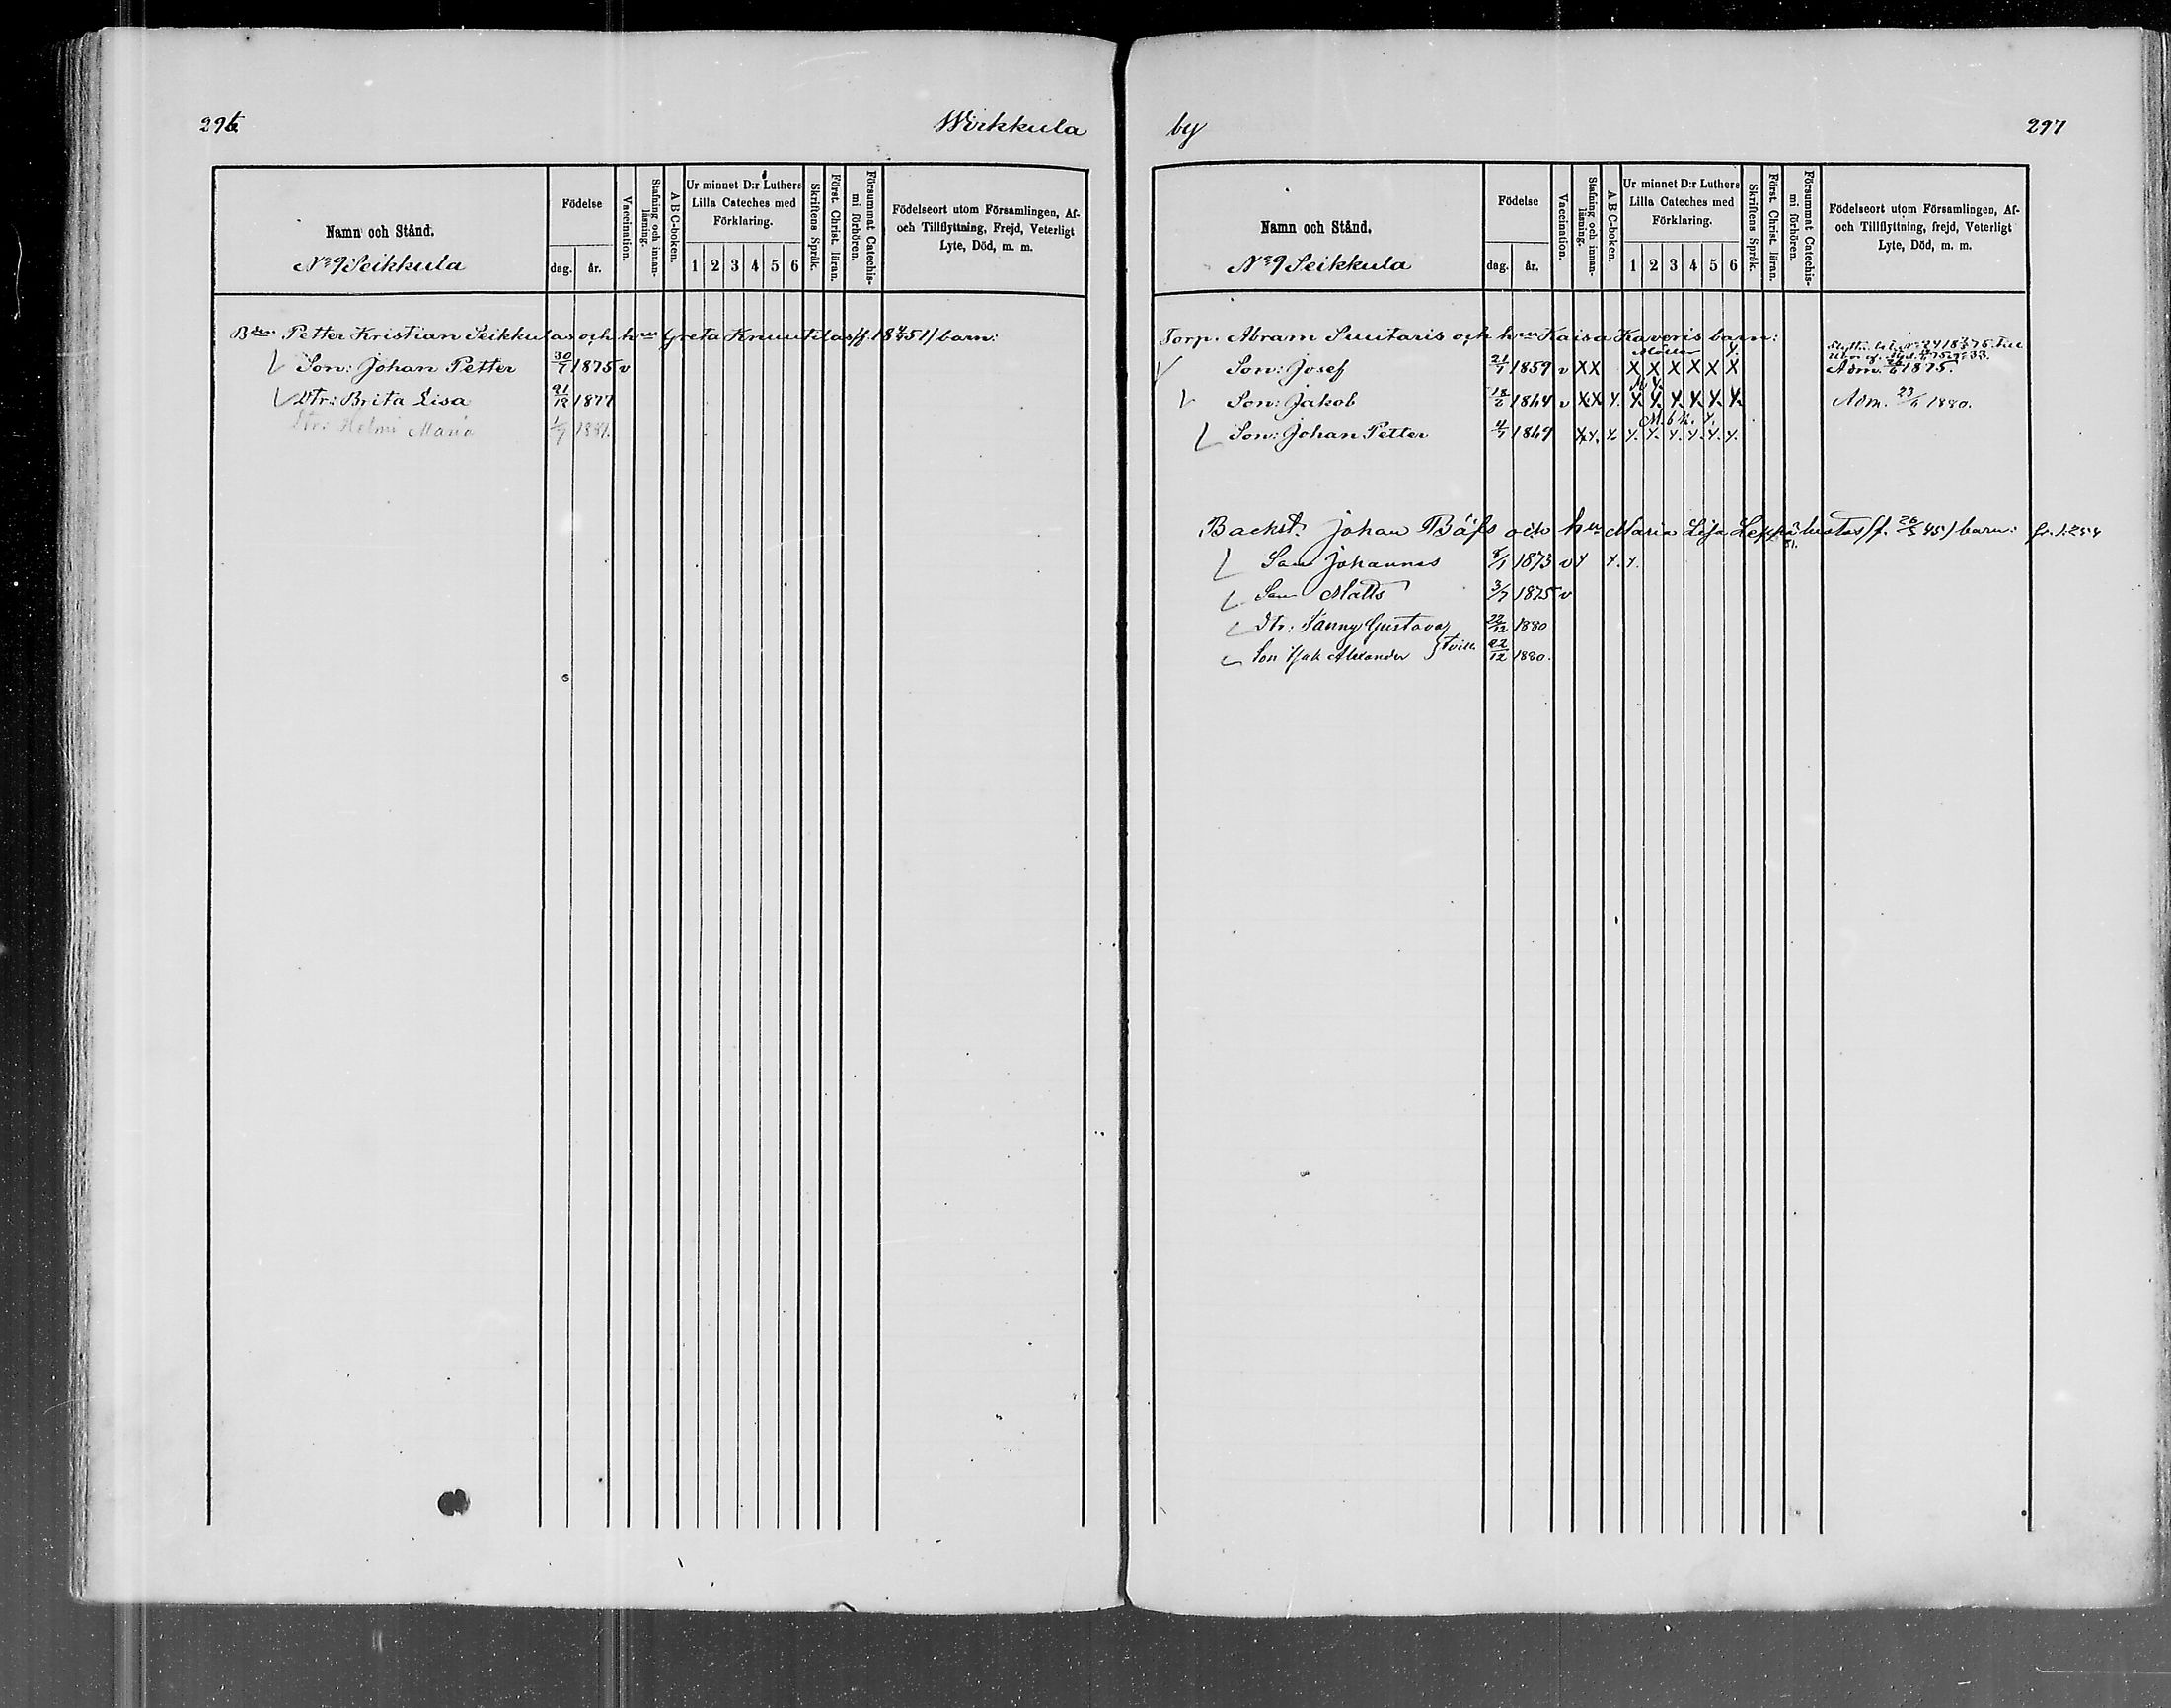 296 Wirkkula
Namn och Stånd.
Födelse
dag. år.
Vaccination.
Stafning och innan-läsning.
A B C-boken.
Ur minnet D:r Luthers
Lilla Cateches med
Förklaring.
1 2 3 4 5 6
Skriftens Språk.
Först. Christ. läran.
Försummat Catechis-
mi förhören.
Födelseort utom Församlingen, Af-
och Tillflyttning, Frejd, Veterligt
Lyte, Död, m. m.
No 9 Seikkula
Petter Kristian Seikkulas och hru Greta Knuutilas barn:
Son: Johan Petter 30/7 1875 v
Dtr: Brita Lisa 21/12 1877
Dtr: Helmi Maria 1/7 1881.
by 297
Namn och Stånd.
Födelse
dag. år.
Vaccination.
Stafning och innan-
läsning.
A B C-boken.
Ur minnet D:r Luthers
Lilla Cateches med
Förklaring.
1 2 3 4 5 6
Skriftens Språk.
Först. Christ. läran.
Försummat Catechis-
mi förhören.
Födelseort utom Församlingen, Af-
och Tillflyttning, frejd, Veterligt
Lyte, Död, m. m.
No 9 Seikkula
Torp. Abram Suutaris och hru Kaisa Kaveris barn:
Son: Josef 21/7 1859 v X X X X X X X X Adm. 1875.
Son: Jakob 1864 v X X X X X X X X Adm. 1880.
Son: Johan Petter 4/7 1869
Backst. Johan Bäfs och hru Maria Lisa barn:
Son Johannes 1873 v
Son Matts 3/7 1875 v
Dtr: Fanny Gustava 22/12 1880
Son Isak Alexander } tvill. 22/12 1880.